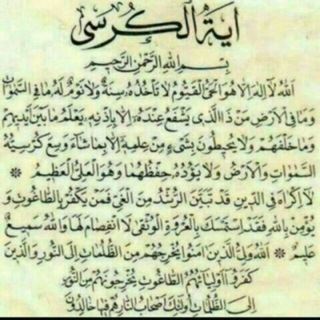 آیَةُ الْکُرْسی
بِسْمِ اللهِ الرَّحْمٰنِ الرَّحیمِ
اَللهُ لَآ اِلٰهَ اِلَّا هُوَ اَلْحَیُّ الْقَیُّومُ لَا تَأْخُذُهُ سِنَةٌ وَلَا نَوْمٌ لَهُ مَا فِی السَّمٰوَاتِ
وَمَا فِی الْاَرْضِ مَنْ ذَا الَّذی یَشْفَعُ عِنْدَهُ اِلَّا بِاِذْنِهِ یَعْلَمُ مَا بَیْنَ اَیْدیهِمْ
وَمَا خَلْفَهُمْ وَلَا یُحیطُونَ بِشَیْءٍ مِنْ عِلْمِهِ اِلَّا بِمَا شَآءَ وَسِعَ کُرْسِیُّهُ
السَّمٰوَاتِ وَالْاَرْضَ وَلَا یَؤُدُهُ حِفْظُهُمَا وَهُوَ الْعَلِیُّ الْعَظیمُ *
لَا اِکْرَاهَ فِی الدّینِ قَدْ تَبَیَّنَ الرُّشْدُ مِنَ الْغَیِّ فَمَنْ یَکْفُرْ بِالطَّاغُوتِ وَ
یُؤْمِنْ بِاللهِ فَقَدِ اسْتَمْسَکَ بِالْعُرْوَةِ الْوُثْقٰی لَا انْفِصَامَ لَهَا وَاللهُ سَمیعٌ
عَلیمٌ * اَللهُ وَلِیُّ الَّذینَ اٰمَنُوا یُخْرِجُهُمْ مِنَ الظُّلُمَاتِ اِلَی النُّورِ وَالَّذینَ
کَفَرُوا اَوْلِیَآؤُهُمُ الطَّاغُوتُ یُخْرِجُونَهُمْ مِنَ النُّورِ
اِلَی الظُّلُمَاتِ اُولٰئِکَ اَصْحَابُ النَّارِ هُمْ فیهَا خَالِدُونَ